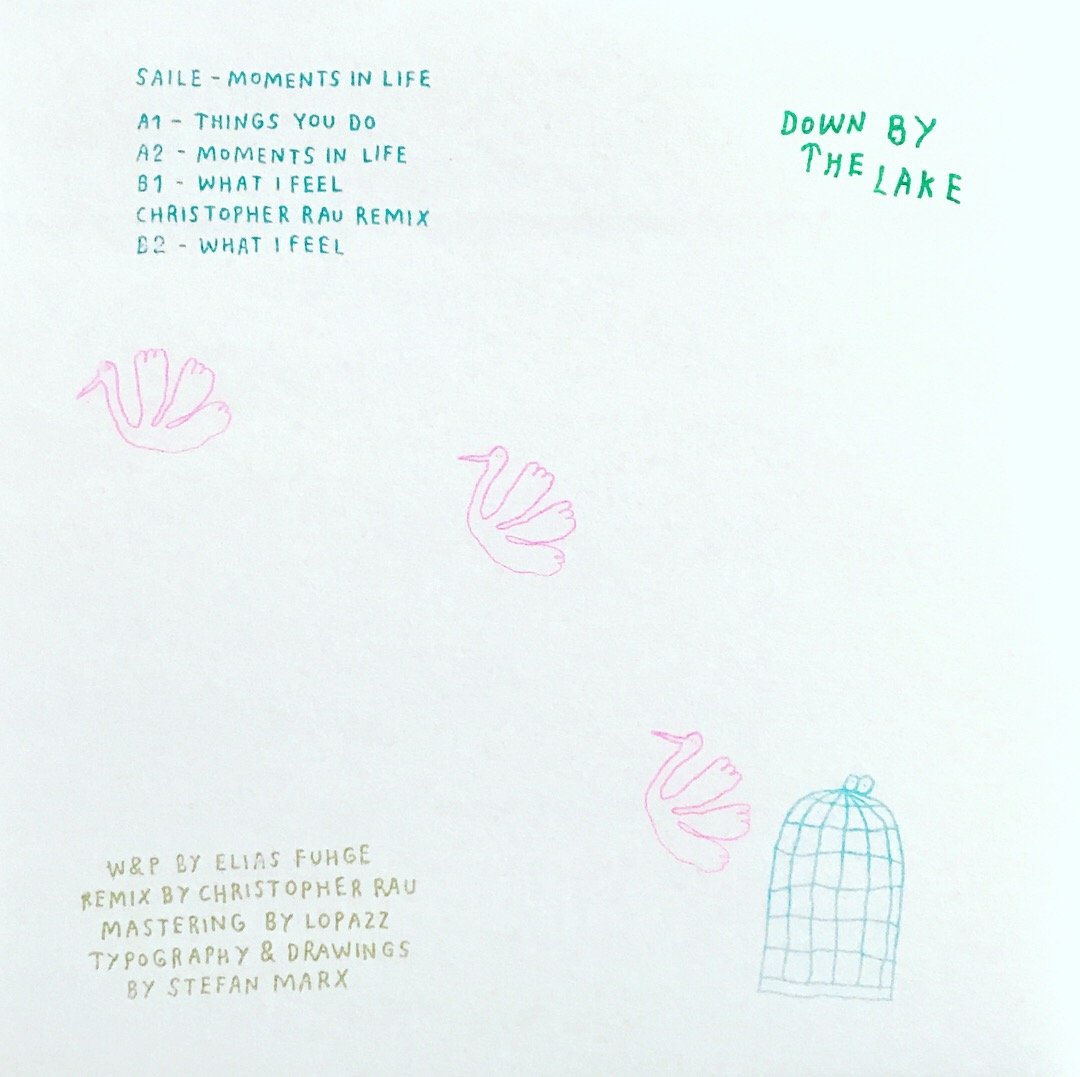 SAILE - MOMENTS IN LIFE
A1 - THINGS YOU DO
A2 - MOMENTS IN LIFE
B1 - WHAT I FEEL
CHRISTOPHER RAU REMIX
B2 - WHAT I FEEL
DOWN BY
THE LAKE
W&P BY ELIAS FUHGE
REMIX BY CHRISTOPHER RAU
MASTERING BY LOPAZZ
TYPOGRAPHY & DRAWINGS
BY STEFAN MARX